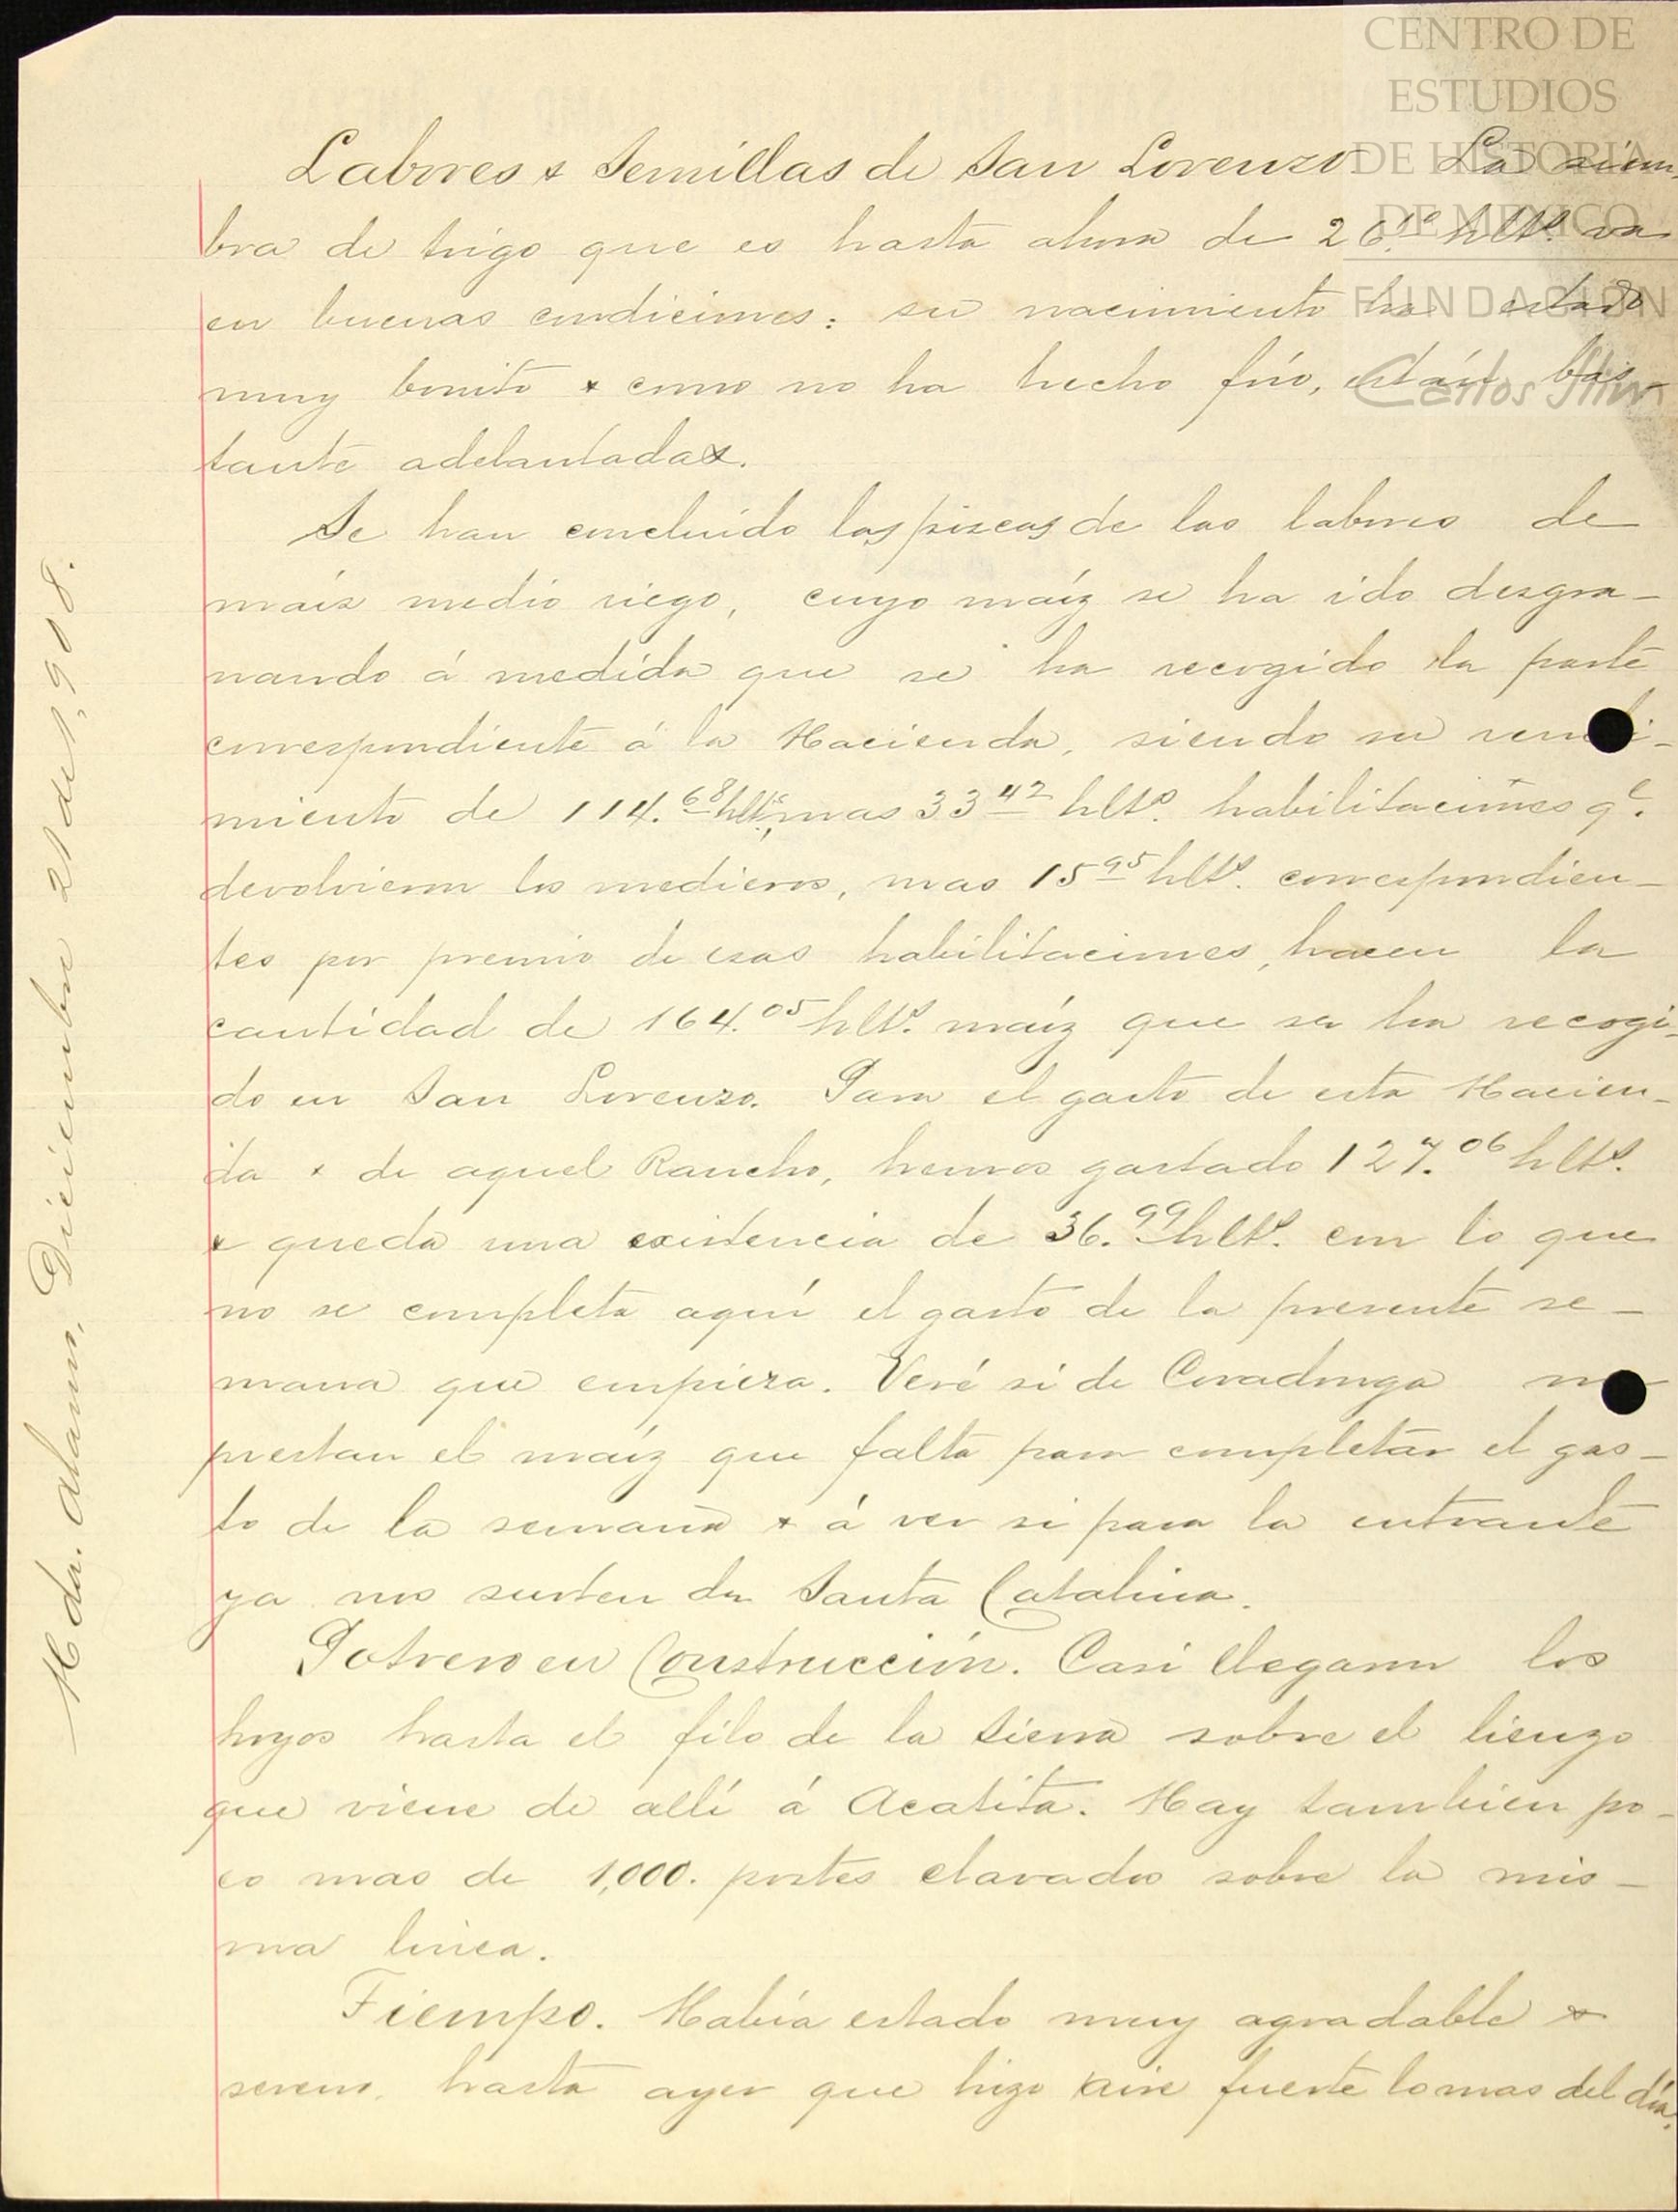 CENTRO DE
ESTUDIOS
DE HISTORIA
DE MÉXICO
FUNDACIÓN
Carlos Slim
Labores & Semillas de San Lorenzo. La siem-
bra de trigo que es hasta ahora de hlts. va
en buenas condiciones: su nacimiento ha estado
muy bonito & como no ha hecho frío, están bas-
tante adelantadas.
Se han concluído las piscas de las labores de
maíz medio riego, cuyo maíz se ha ido desgra-
nando á medida que se ha recogido la parte
correspondiente á la Hacienda, siendo su rendi-
miento de 114.68 hlts, mas 33 42 hlts. habilitaciones qe.
devolvieron los medieros, mas 15 95 hlts. correspondien-
tes por premio de esas habilitaciones, hacen la
cantidad de 164.05 hlts. maíz que se ha recogi-
do en San Lorenzo. Para el gasto de esta Hacien-
da & de aquel Rancho, hemos gastado 127.06 hlts.
& queda una existencia de 36.99 hlts. con lo que
no se completa aquí el gasto de la presente se-
mana que empieza. Veré si de Covadonga nos
prestan el maíz que falta para completar el gas-
to de la semana & á ver si para la entrante
ya nos surten de Santa Catalina.
Potrero en Construcción. Casi llegaron los
hoyos hasta el filo de la sierra sobre el lienzo
que viene de allí á Acatita. Hay tambien po-
co mas de 1,000. postes clavados sobre la mis-
ma linea.
Tiempo. Había estado muy agradable &
sereno, hasta ayer que hizo aire fuerte lo mas del día,
Hda. Alamo, Diciembre 21 de 1,908.